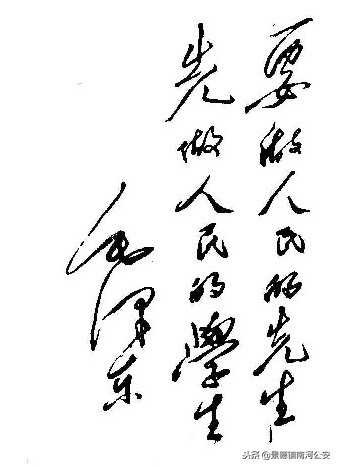 要做人民的先生
先做人民的學生
毛澤东
头条@景德镇南河公安